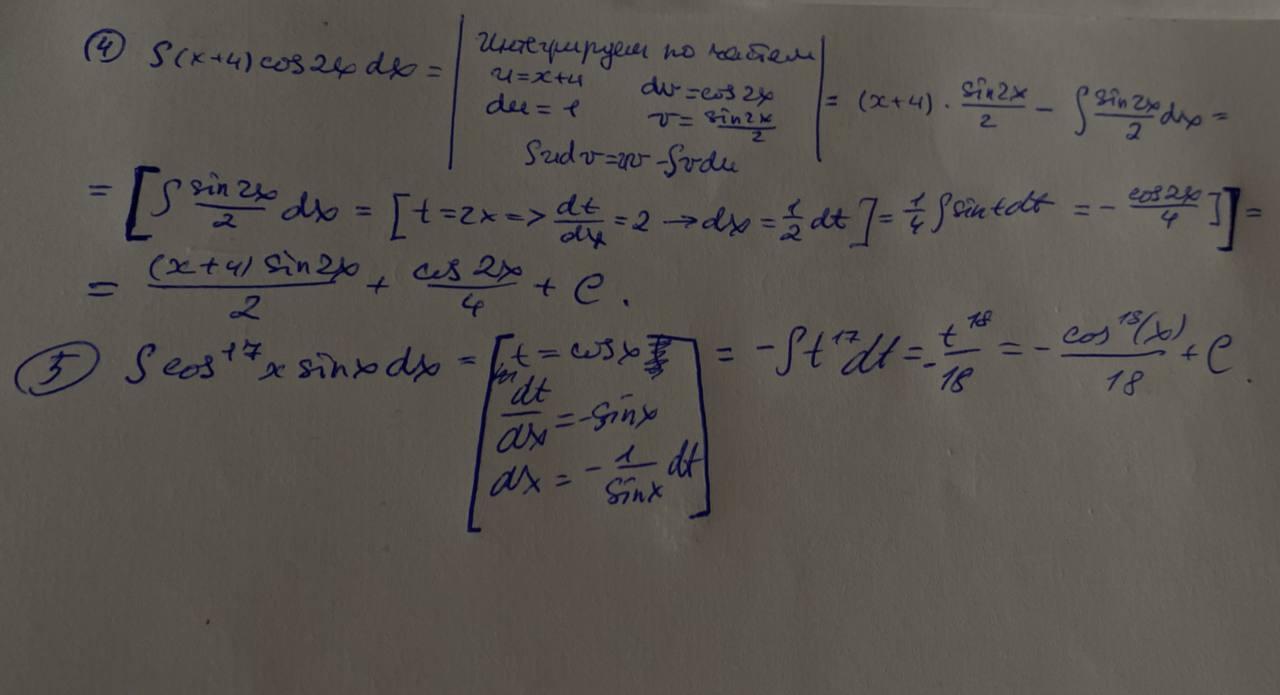 ④ ∫(x+4)cos2x dx = | Интегрируем по частям
u=x+4 dv=cos2x
du=1 v=sin2x/2
∫udv=uv-∫vdu | = (x+4)·sin2x/2 - ∫sin2x/2 dx =
= [∫sin2x/2 dx = [t=2x=>dt/dx=2→dx=1/2 dt]=1/4∫sintdt = -cos2x/4]] =
= (x+4)sin2x/2 + cos2x/4 + C.
⑤ ∫cos¹⁷x sinx dx = [t=cosx
dt/dx=-sinx
dx=-1/sinx dt] = -∫t¹⁷dt = -t¹⁸/18 = -cos¹⁸(x)/18 + C.